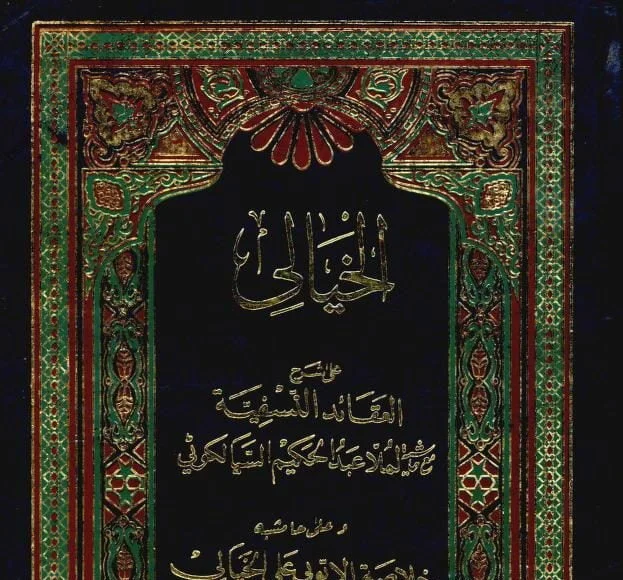 الخيالي
على شرح
العقائد النسفية
مع حاشية لملا عبد الحكيم السيالكوتي
وعلى حاشيه
على الخيالي